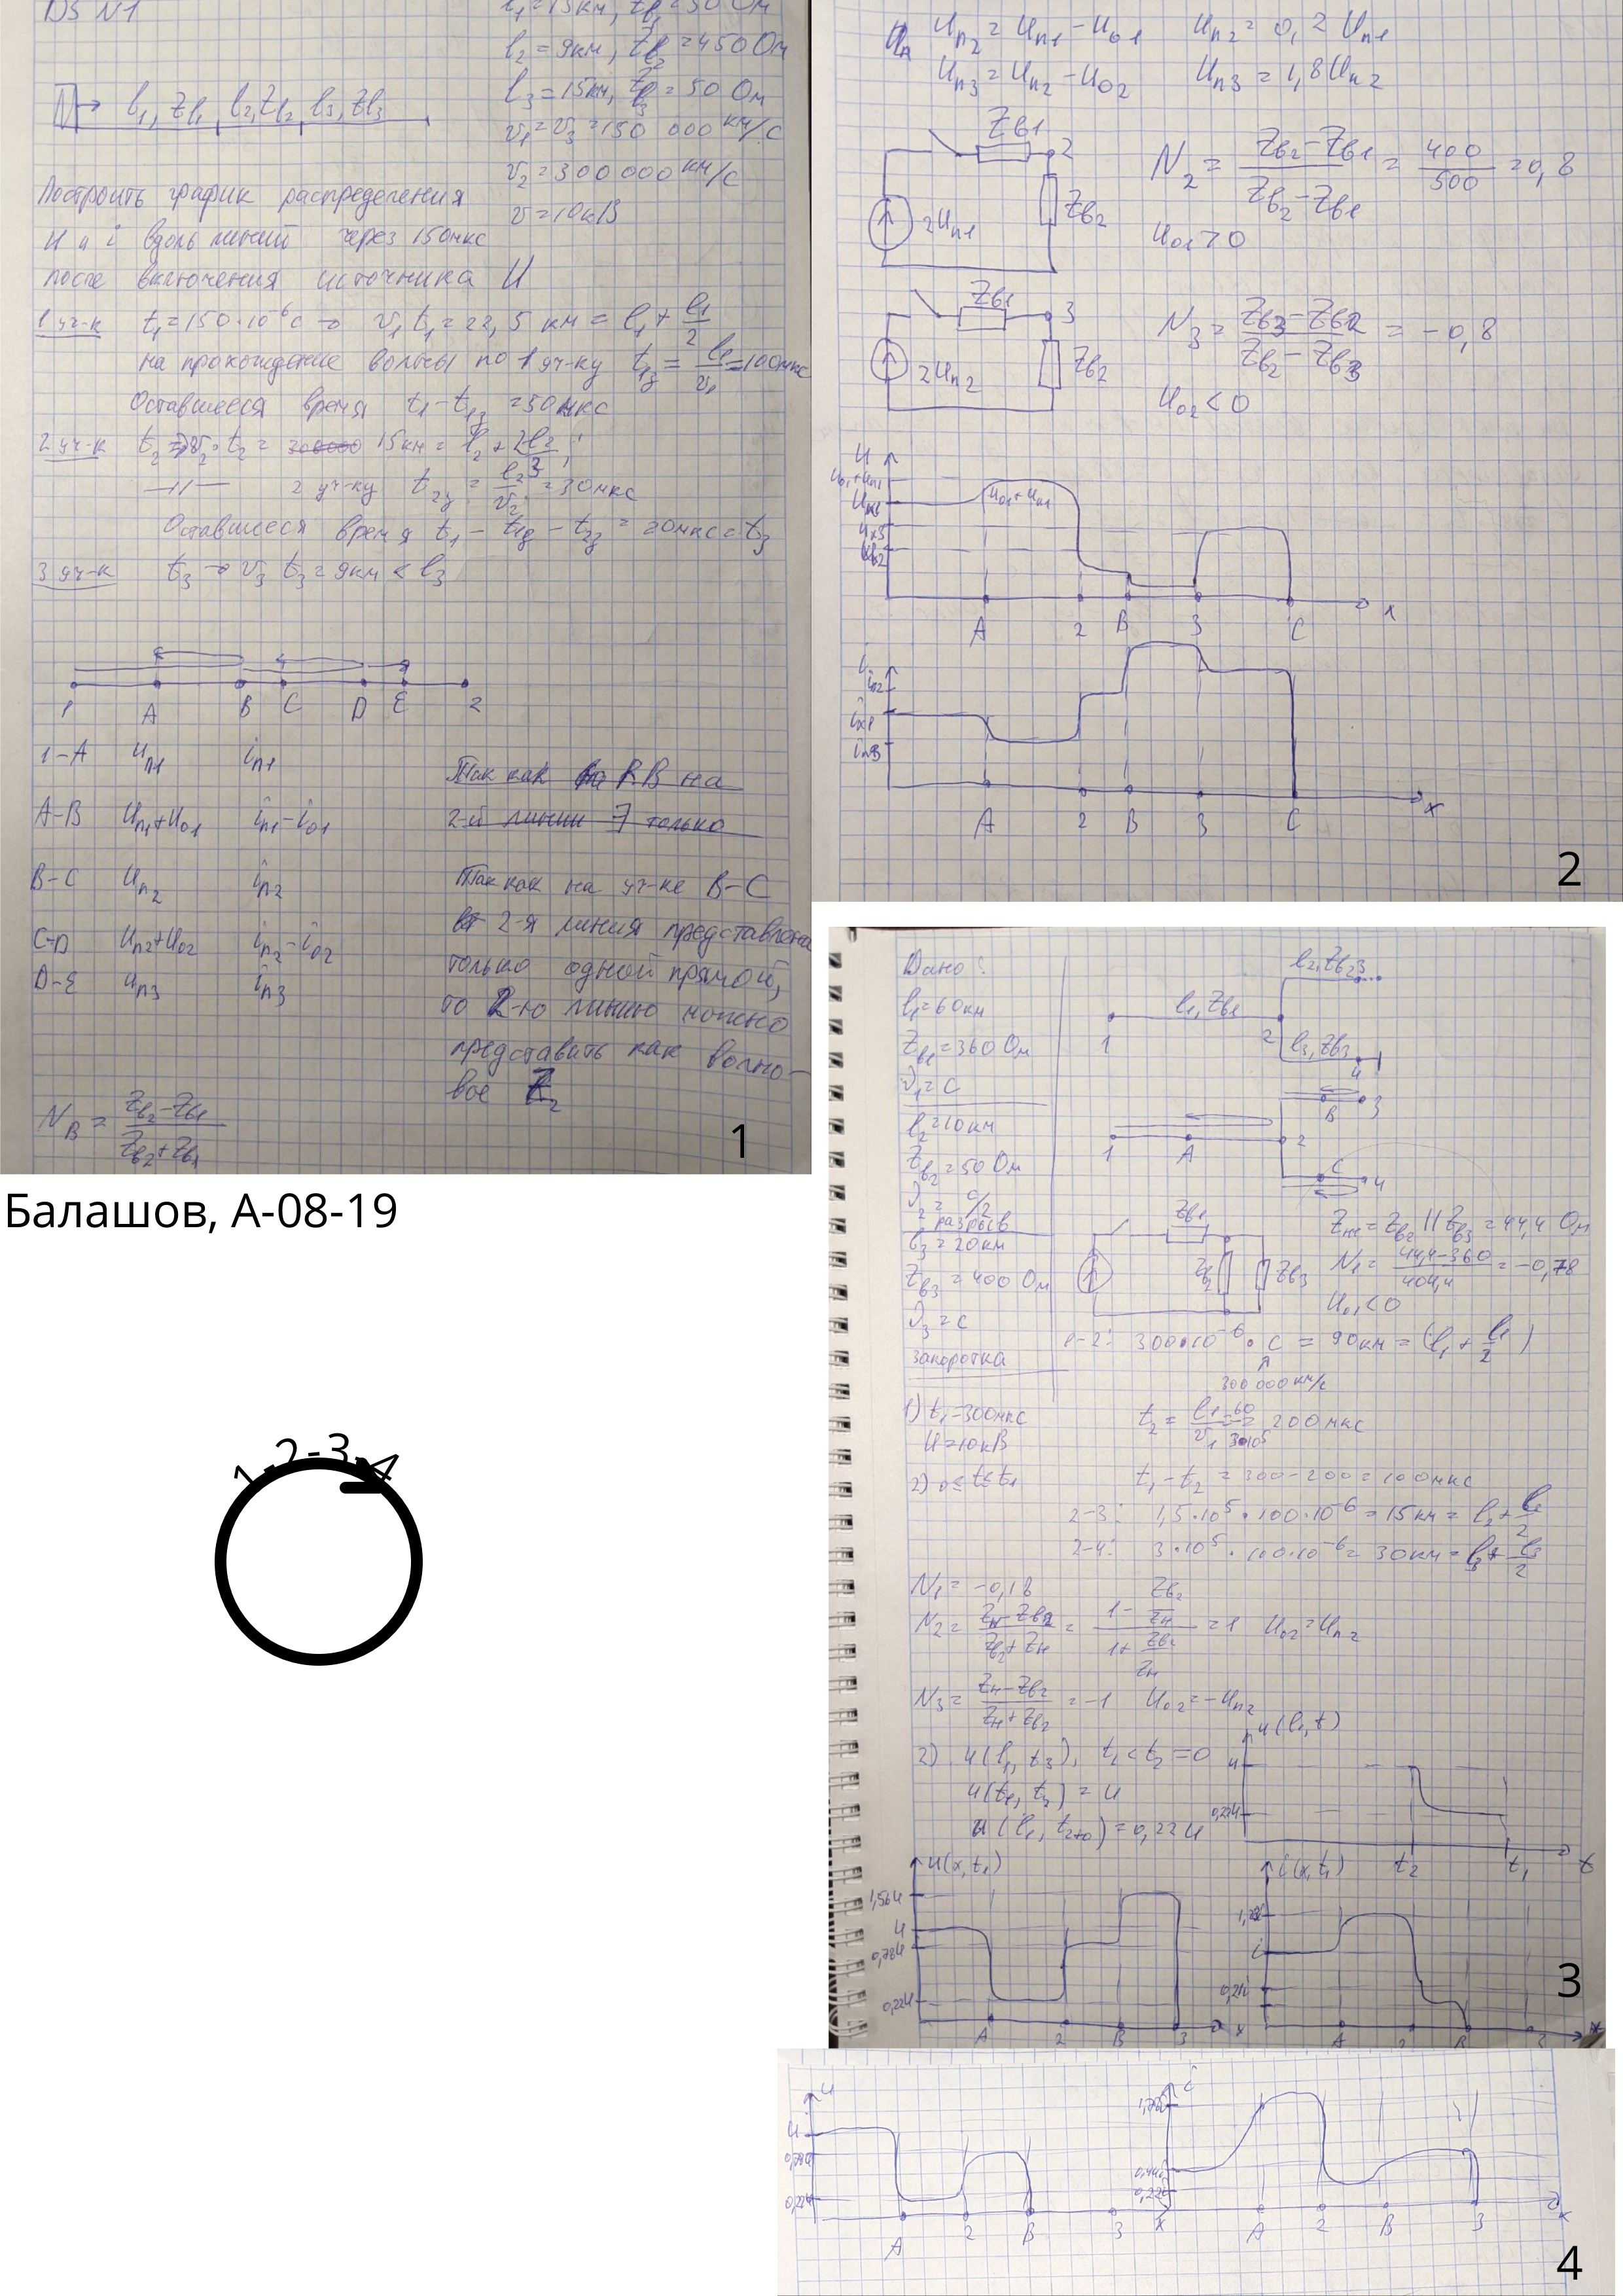 DЗ N1
l₁=15км, Zв₁=50 Ом
l₂=9км, Zв₂=450 Ом
l₃=15км, Zв₃=50 Ом
v₁=v₃=150 000 км/с
v₂=300 000 км/с
v=10кВ
l₁, Zв₁, l₂, Zв₂, l₃, Zв₃
Построить график распределения
U и i вдоль линий через 150мкс
после включения источника U
1 уч-к t₁=150·10⁻⁶с → v₁t₁=22,5 км = l₁+l₁/2
на прохождение волны по 1 уч-ку t₁g = l₁/v₁=100мкс
Оставшееся время t₁-t₁g=50мкс
2 уч-к t₂ → v₂·t₂ = 15км = l₂+2l₂/3;
—//— 2 уч-ку t₂g = l₂/v₂ = 30мкс
Оставшееся время t₁-t₁g-t₂g = 20мкс = t₃
3 уч-к t₃ → v₃t₃=9км < l₃
1 A B C D E 2
1-A Uп₁ iп₁
A-B Uп₁+U₀₁ iп₁-i₀₁
B-C Uп₂ iп₂
C-D Uп₂+U₀₂ iп₂-i₀₂
D-E Uп₃ iп₃
Так как RB на
2-й линии ∃ только
Так как на уч-ке B-C
2-я линия представлена
только одной прямой,
то 2-ю линию можно
представить как волно-
вое Z₂
N_B = (Zв₂-Zв₁)/(Zв₂+Zв₁)
1
Uп₂=Uп₁-U₀₁ Uп₂=0,2Uп₁
Uп₃=Uп₂-U₀₂ Uп₃=1,8Uп₂
Zв₁ 2 Zв₂ 2Uп₁
N₂ = (Zв₂-Zв₁)/(Zв₂-Zв₁) = 400/500 = 0,8
U₀₁>0
Zв₁ 3 Zв₂ 2Uп₂
N₃ = (Zв₃-Zв₂)/(Zв₂-Zв₃) = -0,8
U₀₂<0
U
U₀₁+Uп₁
U₀₁+Uп₁
A 2 B 3 C x
A 2 B 3 C x
2
Дано:
l₁=60км
Zв₁=360 Ом
ϑ₁=c
l₂=10км
Zв₂=50 Ом
ϑ₂=c/2
разрыв
l₃=20км
Zв₃=400 Ом
ϑ₃=c
закоротка
1) t₁=300мкс
U=10кВ
2) 0≤t≤t₁
l₂, Zв₂ 3
1 l₁, Zв₁ 2
l₃, Zв₃ 4
1 A 2 B 3
C 4
Zв₁ Zв₂ Zв₃
Zв₂||Zв₃=44,4 Ом
N₁ = (44,4-360)/404,4 = -0,78
U₀₁<0
1-2: 300·10⁻⁶·c = 90км = (l₁+l₁/2)
300 000 км/с
t₂ = l₁/v₁ = 60/3·10⁵ = 200мкс
t₁-t₂=300-200=100мкс
2-3: 1,5·10⁵·100·10⁻⁶=15км=l₂+l₂/2
2-4: 3·10⁵·100·10⁻⁶=30км=l₃+l₃/2
N₂ = (Zн-Zв₂)/(Zв₂+Zн) = (1-Zв₂/Zн)/(1+Zв₂/Zн) = 1 U₀₂=Uп₂
N₃ = (Zн-Zв₂)/(Zн+Zв₂) = -1 U₀₂=-Uп₂
2) U(l₁, t₃), t₁<t₂=0
U(l₁, t₂₊₀)=0,22U
U(l₁,t)
U
0,22U
t₂ t₁ t
U(x,t₁)
1,56U
U
0,78U
0,22U
A 2 B 3 x
i(x,t₁)
i
A 2 B 3 x
3
U
U
0,78U
0,22U
A 2 B 3 x
i
1,78i
0,44i
0,22i
A 2 B 3 x
4
Балашов, А-08-19
1-2-3-4